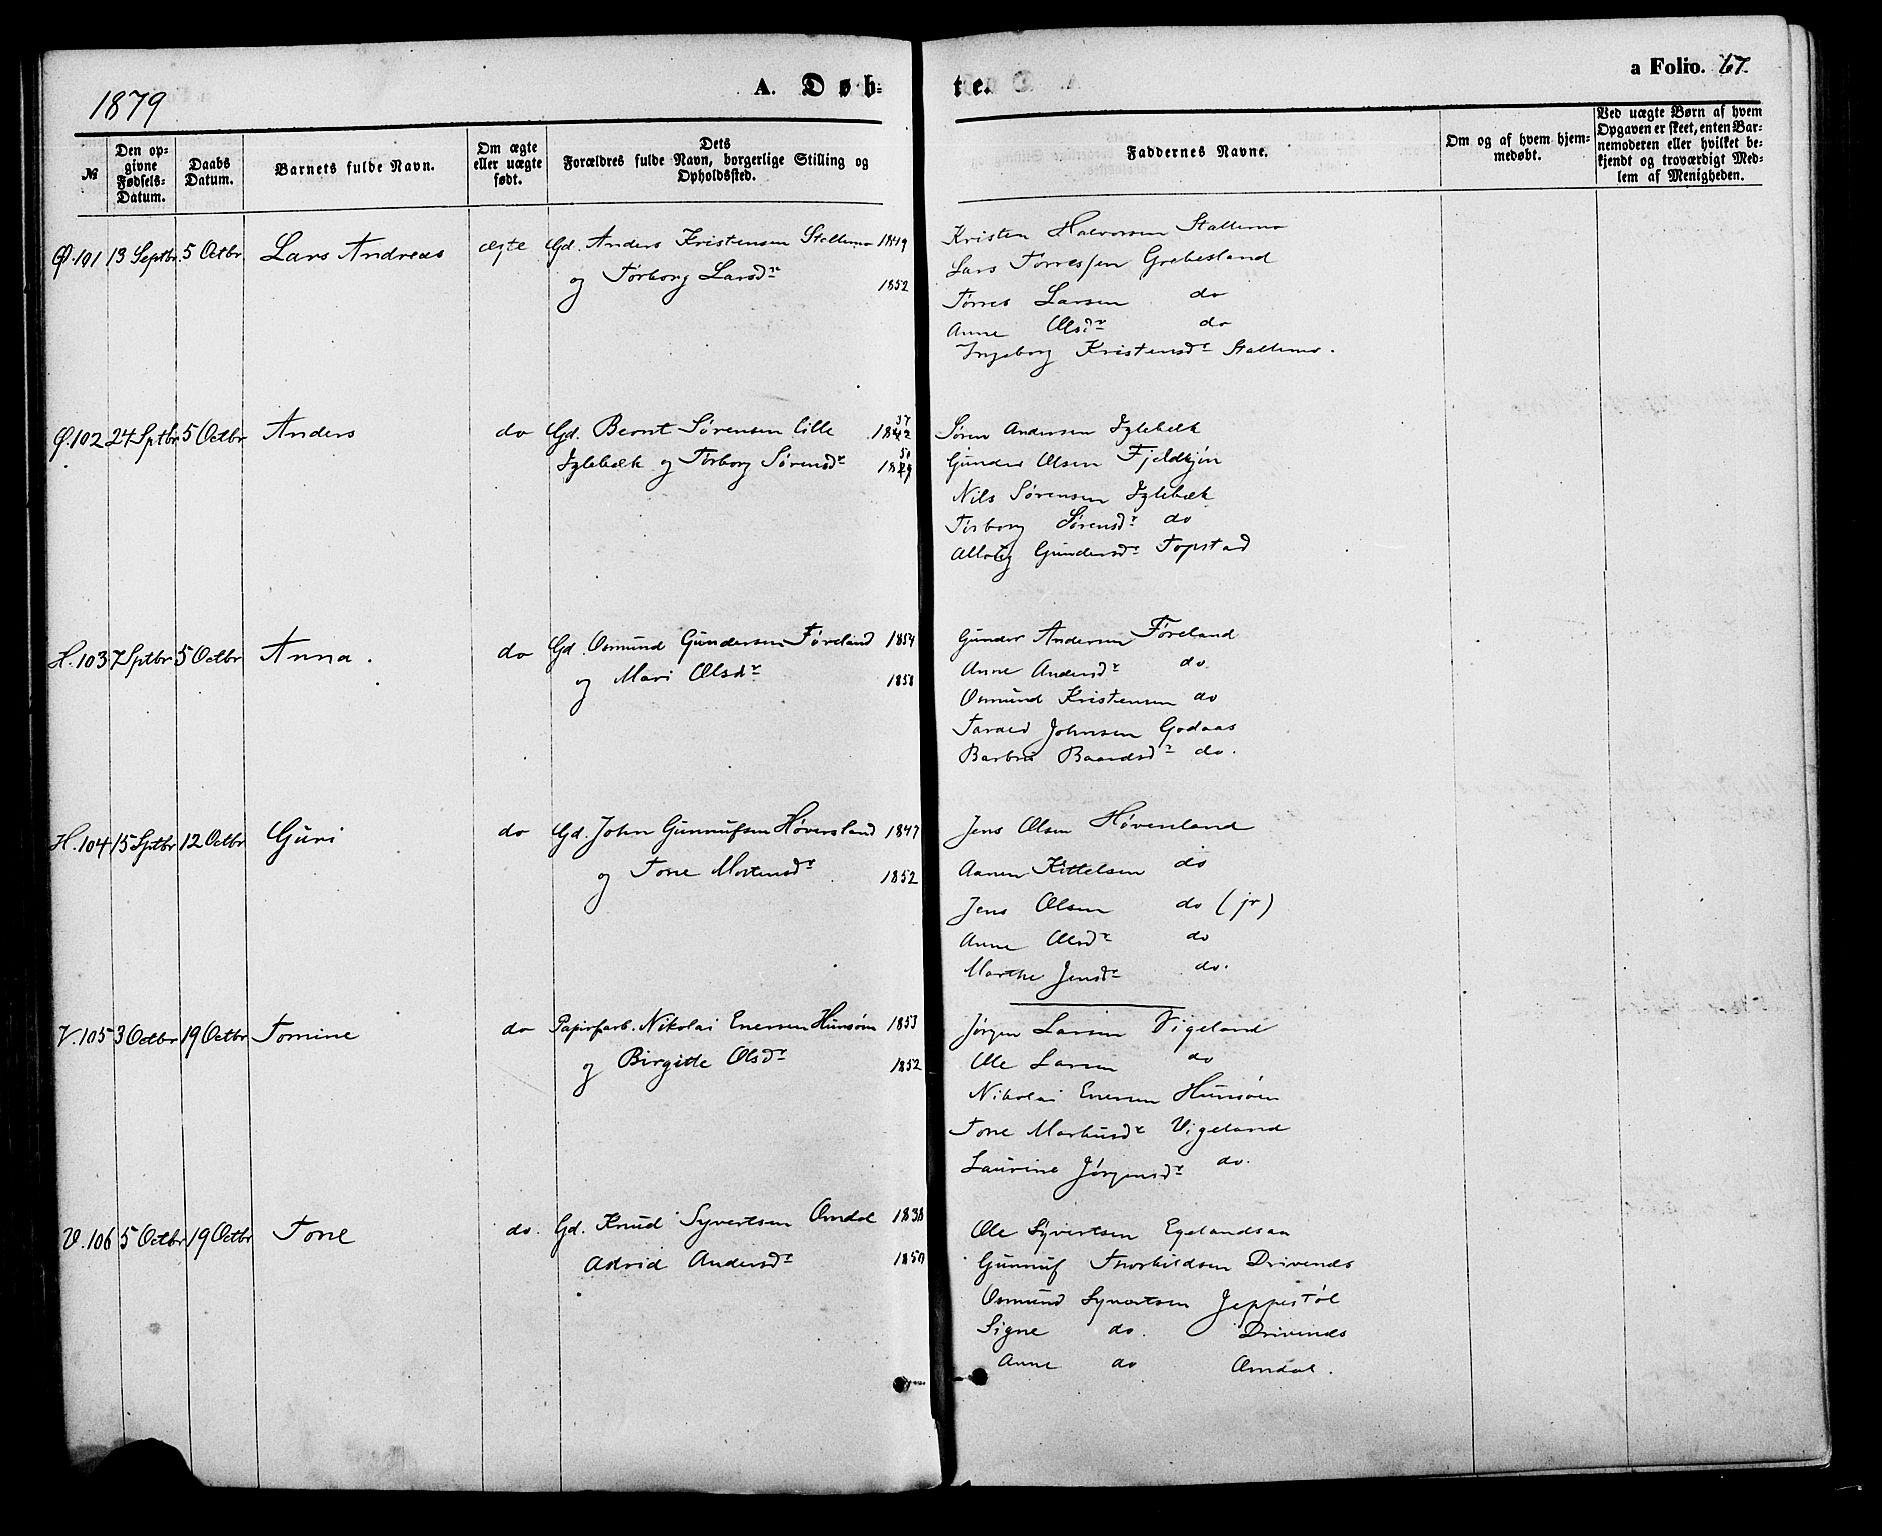 1879
A. Døb-
te.
a Folio. 67.
№
Den op-
givne
Fødsels-
Datum.
Daabs
Datum.
Barnets fulde Navn.
Om ægte
eller uægte
født.
Dets
Forældres fulde Navn, borgerlige Stilling og
Opholdssted.
Faddernes Navne.
Om og af hvem hjem-
medøbt.
Ved uægte Børn af hvem
Opgaven er skeet, enten Bar-
nemoderen eller hvilket be-
kjendt og troværdigt Med-
lem af Menigheden.
Ø.101 13 Septbr 5 Octbr Lars Andreas ægte Gd. Anders Kristensen Stallemo 1849
og Tørborg Larsdr 1852
Kristen Halvorsen Stallemo
Lars Torressen Grebesland
Tørres Larsen do
Anne Olsdr do
Ingeborg Kristensdr Stallemo.
Ø.102 24 Sptbr 5 Octbr Anders do Gd. Bernt Sørensen lille
Iglebæk og Torborg Sørensdr
Søren Andersen Iglebæk
Gunder Olsen Fjeldkjøn
Nils Sørensen Iglebæk
Torborg Sørensdr do
Gundersdr Topstad
H.103 7 Sptbr 5 Octbr Anna. do Gd. Osmund Gundersen Føreland 1854
og Mari Olsdr 1858
Gunder Andersen Føreland
Anne Andersdr do
Osmund Kristensen do
Tarald Johnsen Godaas
Barbro Baardsdr do.
H.104 15 Sptbr 12 Octbr Guri do Gd. John Gunnufsen Høversland 1847
og Tone Mortensdr 1852
Jens Olsen Høversland
Aanen Kittelsen do
Jens Olsen do (jr)
Anne Olsdr do
Marthe Jensdr do.
V.105 3 Octbr 19 Octbr Tomine do Papirfarb. Nikolai Enersen Hunsøen 1853
og Birgitte Olsdr 1852
Jørgen Larsen Vigeland
Ole Larsen do
Nikolai Enersen Hunsøen
Tone Markusdr Vigeland
Laurine Jørgensdr do.
V.106 5 Octbr 19 Octbr Tone do. Gd. Knud Syvertsen Omdal 1838
Astrid Andersdr 1850
Ole Syvertsen Egelandsaa
Gunnuf Thorkildsen Drivenes
Osmund Syvertsen Jeppestøl
Signe do. Drivenes
Anne do Omdal.